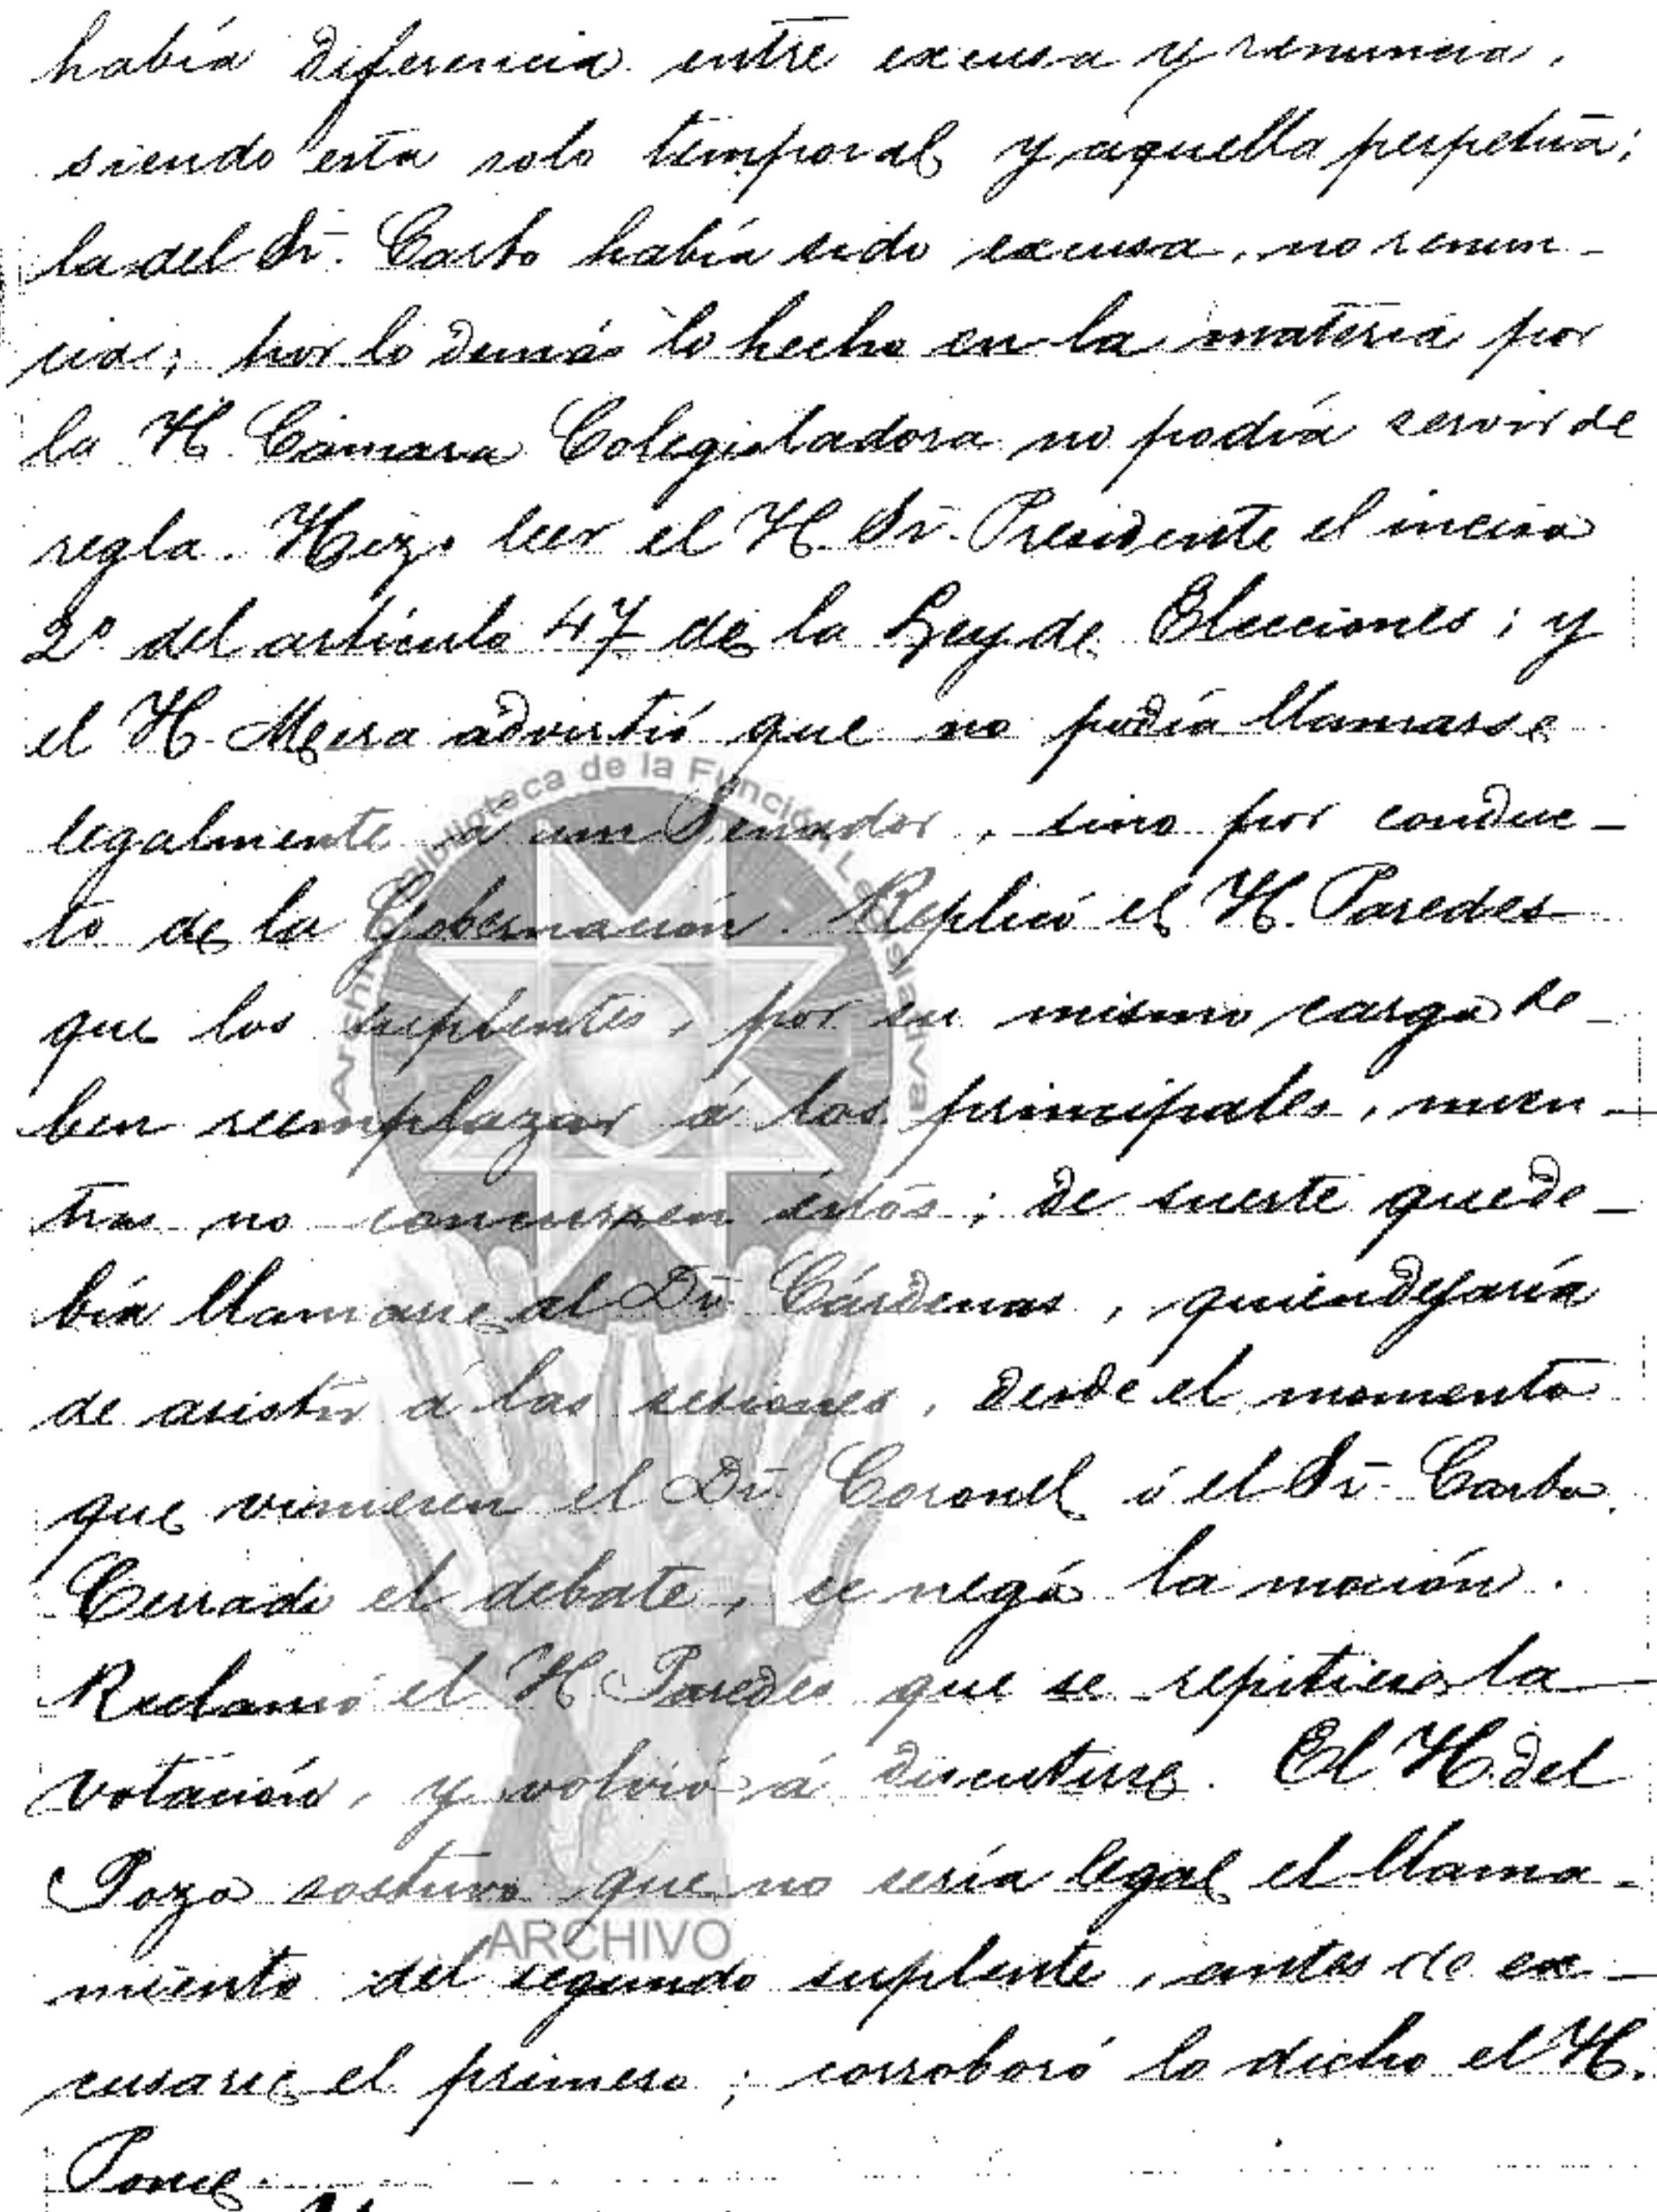 había diferencia entre excusa y renuncia,
siendo esta solo temporal y aquella perpetua;
la del Sr. Carbo había sido excusa, no renun-
cia; por lo demás lo hecho en la materia por
la H. Cámara Colegisladora no podía servir de
regla. Hizo leer el H. Sr. Presidente el inciso
2º del artículo 47 de la Ley de Elecciones; y
el H. Mera advirtió que no podía llamarse
legalmente a un Senador, sino por conduc-
to de la Gobernación. Replicó el H. Paredes
que los suplentes, por su mismo cargo de-
ben reemplazar á los principales, mien-
tras no concurren éstos; de suerte que de-
bía llamarse al Dr. Cárdenas, quien dejaría
de asistir á las sesiones, desde el momento
que vinieren el Dr. Coronel ó el Sr. Carbo.
Cerrado el debate, se negó la moción.
Reclamó el H. Paredes que se repitiese la
votación, y volvió á discutirse. El H. del
Pozo sostuvo que no sería legal el llama-
miento del segundo suplente, antes de ex-
cusarse el primero; corroboró lo dicho el H.
Ponce.
Archivo Biblioteca de la Función Legislativa
ARCHIVO